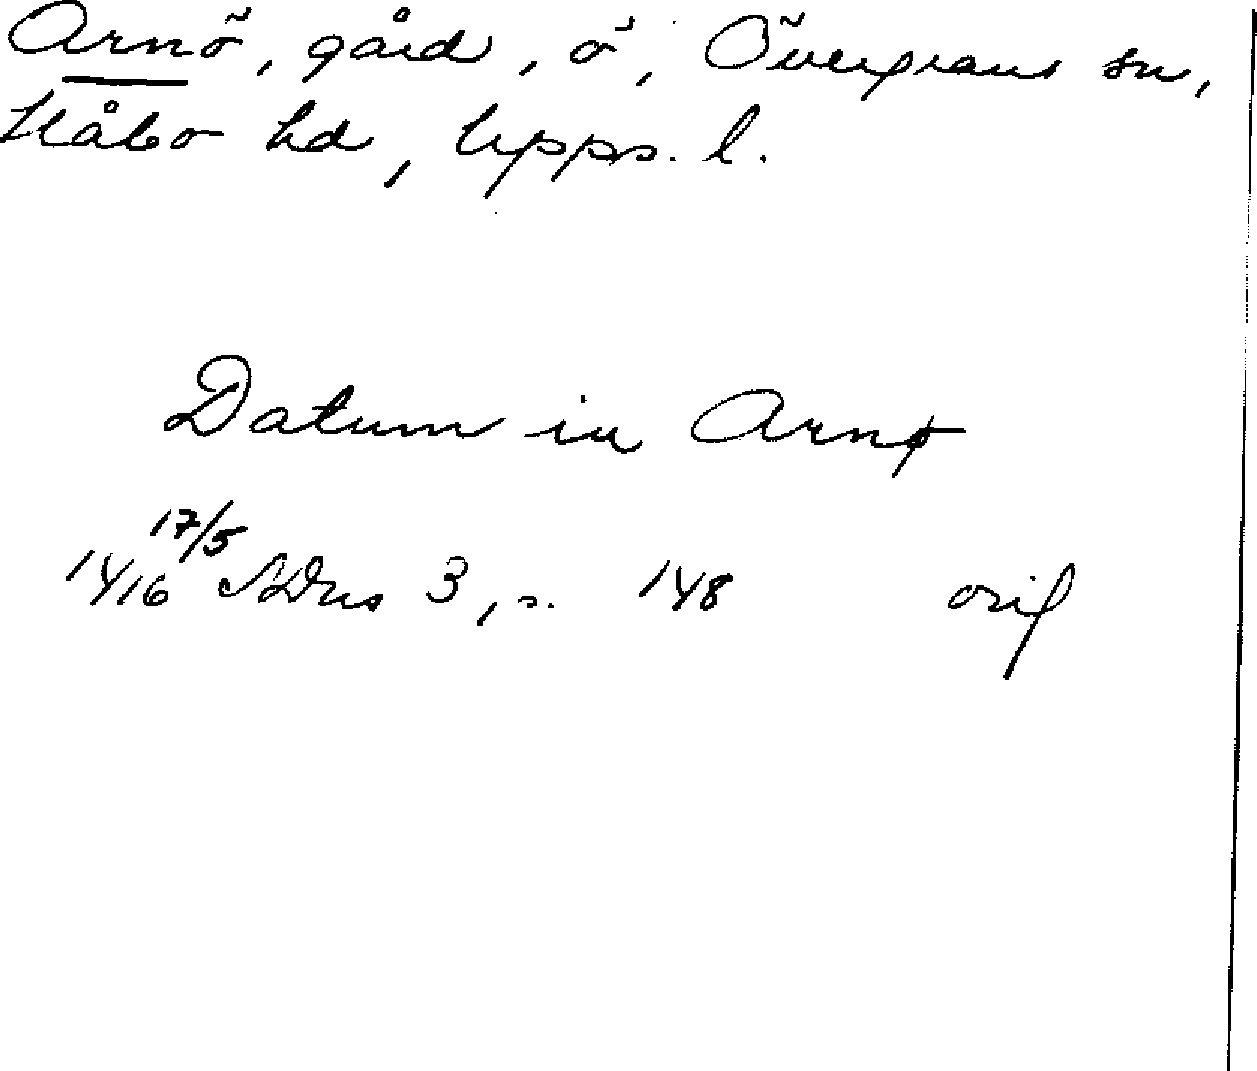 Arnö, gård, ö, Övergrans sn,
Håbo hd, Upps. l.
Datum in Arnø
17/5
1416 SDns 3, s. 148 orig